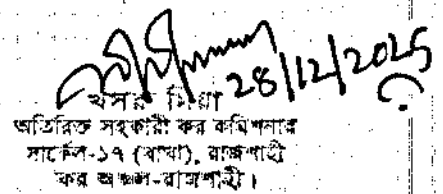 28/12/2025
খসরু মিয়া
অতিরিক্ত সহকারী কর কমিশনার
সার্কেল-১৭ (বাঘা), রাজশাহী
কর অঞ্চল-রাজশাহী।